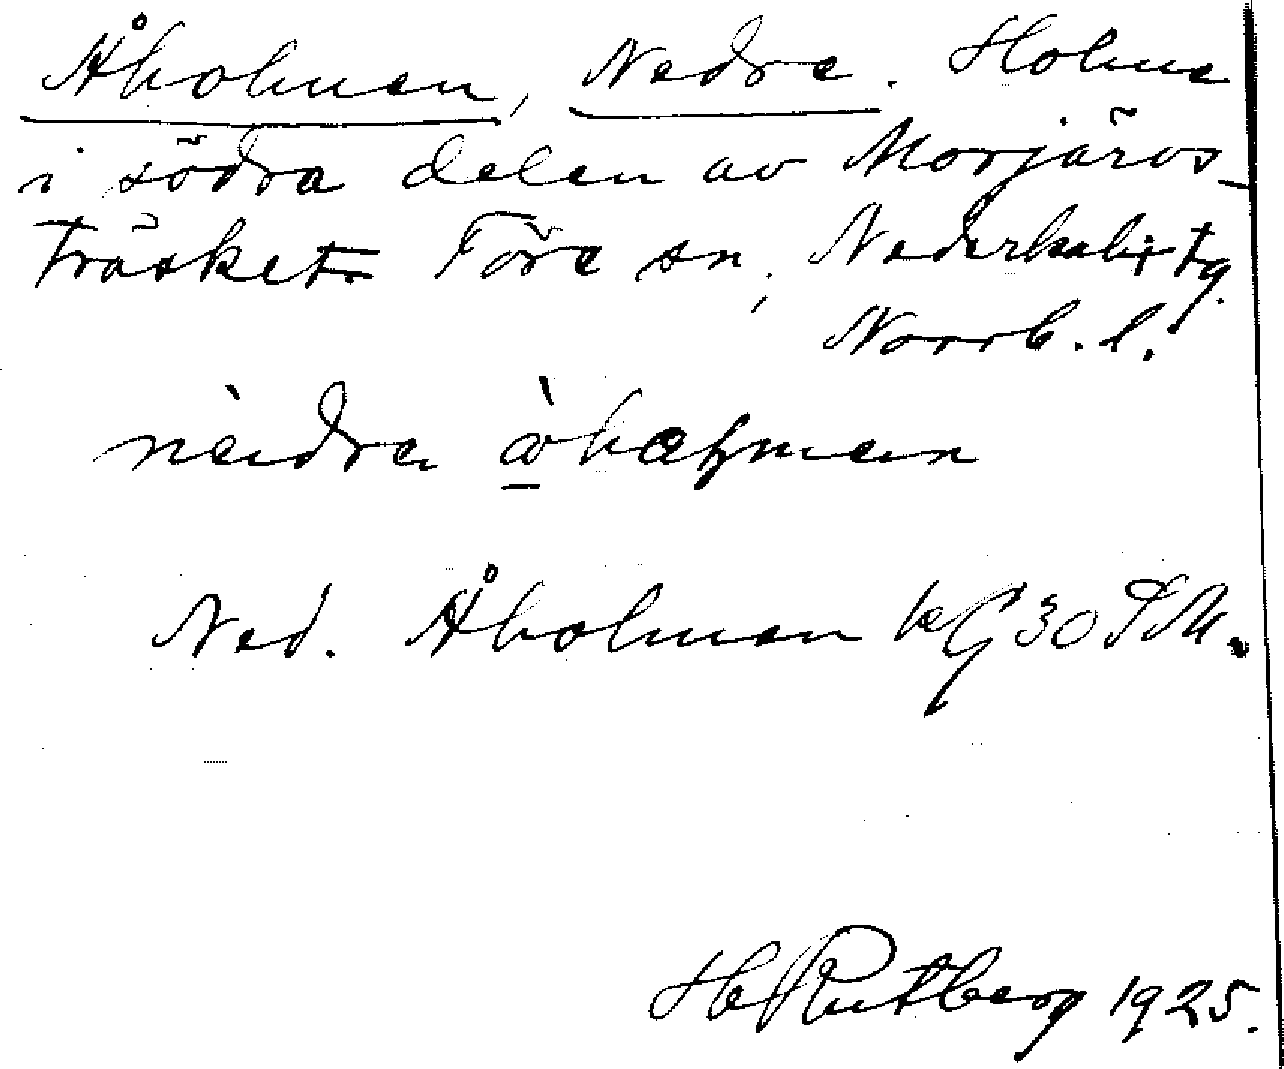 Åholmen, Nedre. Holme
i södra delen av Morjärvs-
träsket Töre sn, Nederkalix tg.
Norrb. l.
Ned. Åholmen
H Rutberg 1925.